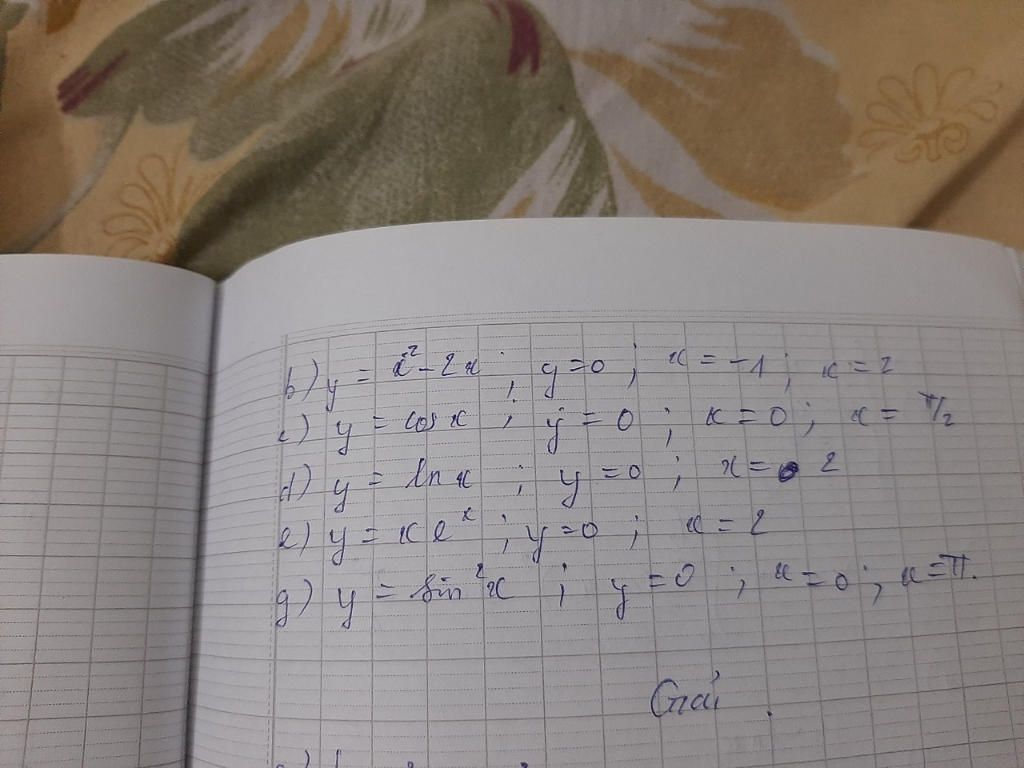 b) y = x² - 2x ; y = 0 ; x = -1 ; x = 2
c) y = cos x ; y = 0 ; x = 0 ; x = π/2
d) y = ln x ; y = 0 ; x = 2
e) y = x e^x ; y = 0 ; x = 2
g) y = sin²x ; y = 0 ; x = 0 ; x = π.
Giải